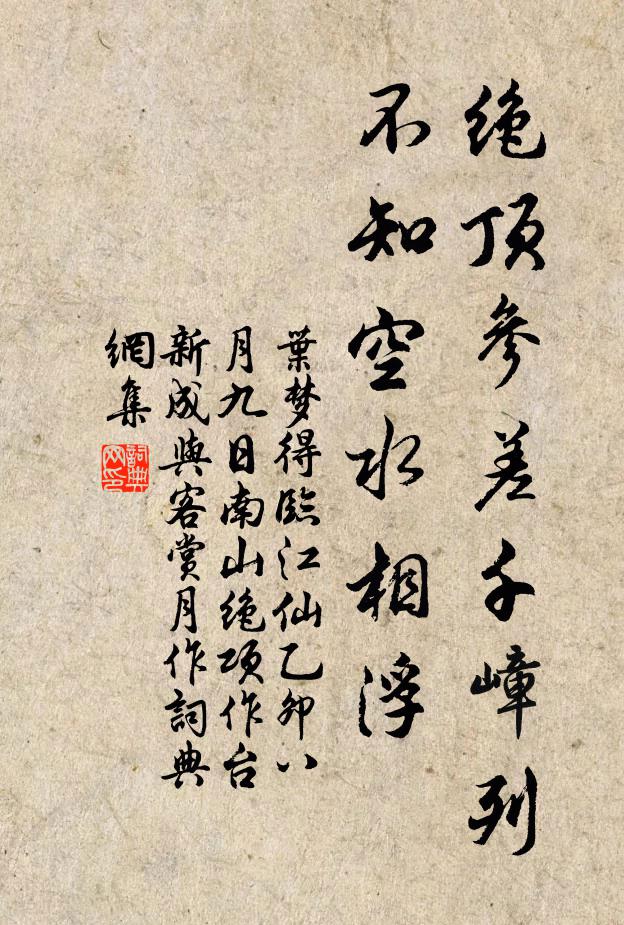 绝顶参差千嶂列
不知空水相浮
葉梦得臨江仙乙卯八
月九日南山绝项作台
新成與客赏月作詞典
網集
詞典
网印